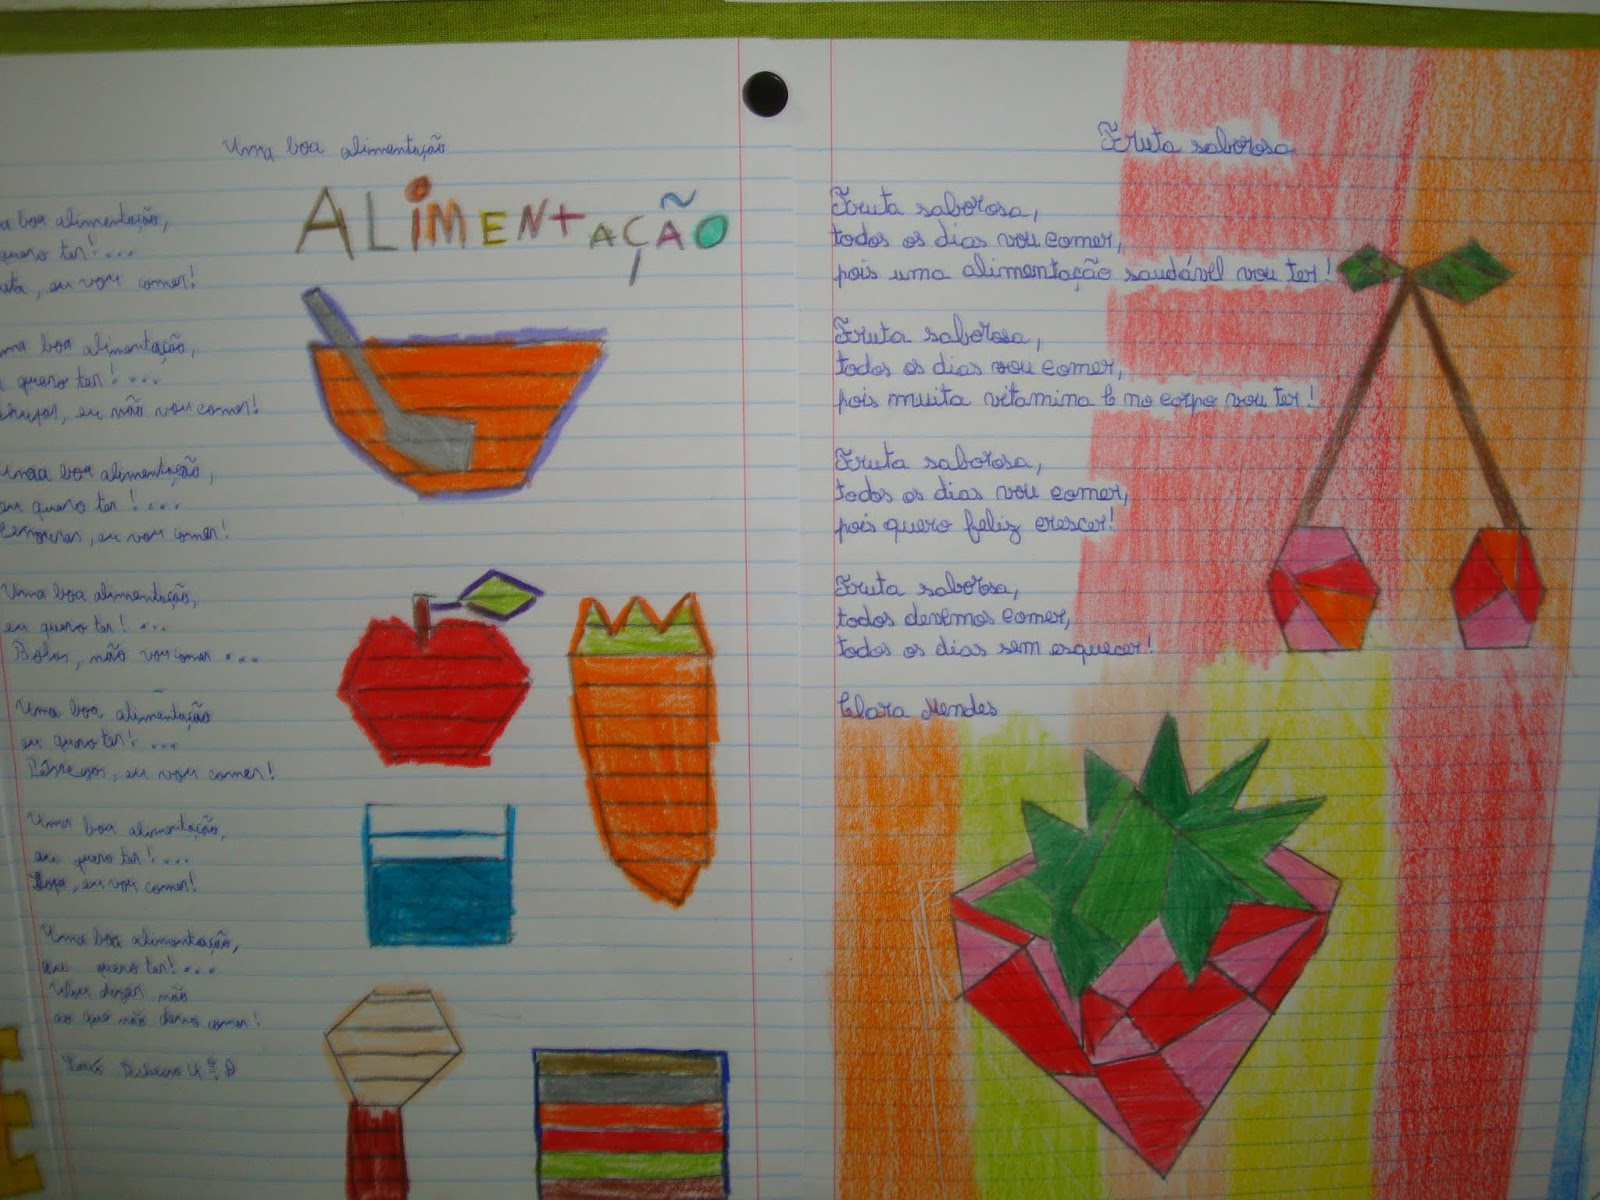 Uma boa alimentação
ALiMENtAÇÃO
a boa alimentação,
quero ter!...
uta, eu vou comer!
ma boa alimentação,
quero ter!...
eu não vou comer!
Uma boa alimentação,
eu quero ter!...
Cenouras, eu vou comer!
Uma boa alimentação,
eu quero ter!...
Bolos, não vou comer...
Uma boa alimentação
eu quero ter!...
Pêssegos, eu vou comer!
Uma boa alimentação,
eu quero ter!...
Sopa, eu vou comer!
Uma boa alimentação,
eu quero ter!...
Vou dizer não
ao que não devo comer!
4º
Fruta saborosa
Fruta saborosa,
todos os dias vou comer,
pois uma alimentação saudável vou ter!
Fruta saborosa,
todos os dias vou comer,
pois muita vitamina no corpo vou ter!
Fruta saborosa,
todos os dias vou comer,
pois quero feliz crescer!
Fruta saborosa,
todos devemos comer,
todos os dias sem esquecer!
Clara Mendes